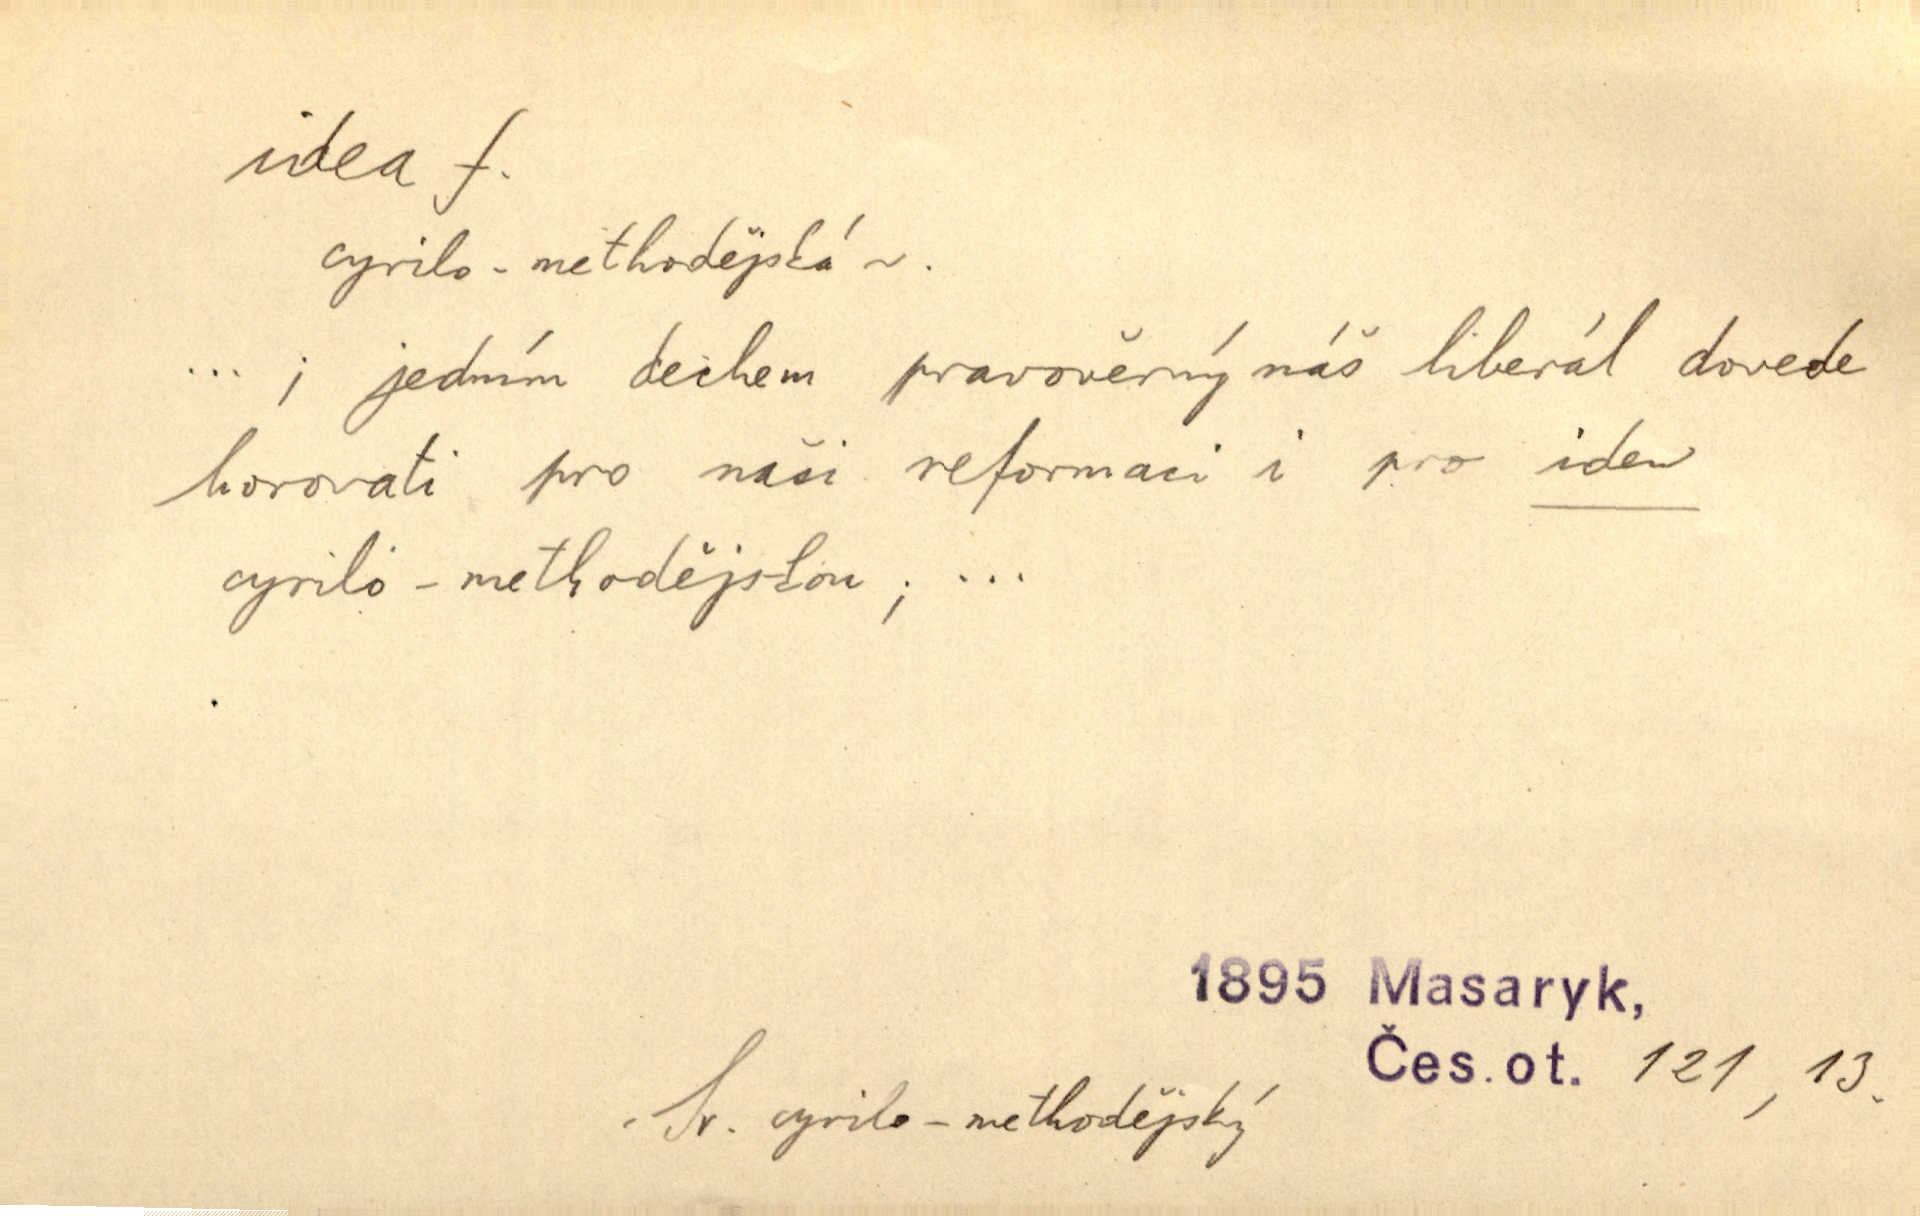 idea f.
cyrilo-methodějská ~.
... ; jedním dechem pravověrný náš liberál dovede
horovati pro naši reformaci i pro ideu
cyrilo-methodějskou; ...
1895 Masaryk,
Čes. ot. 121, 13.
Sr. cyrilo-methodějský